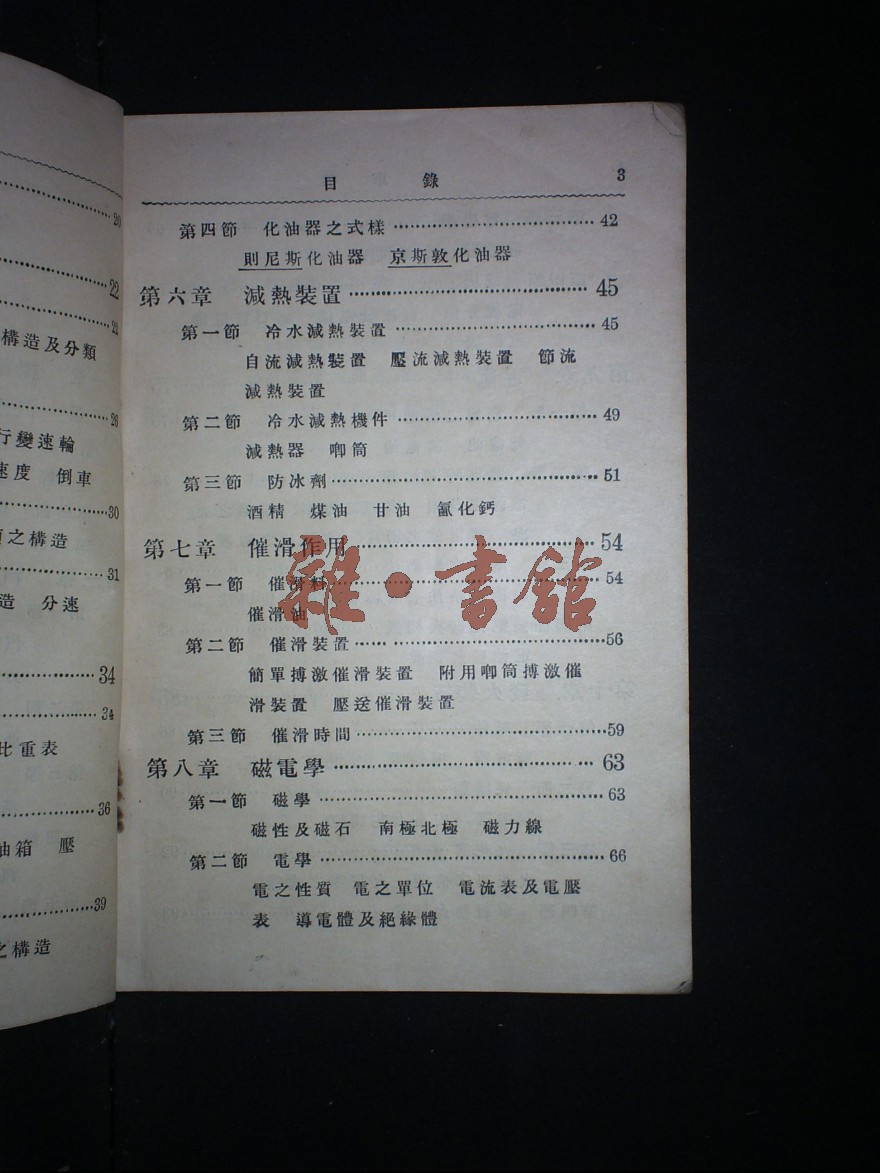 20
22
22
構造及分類
26
行變速輪
速度 倒車
30
之構造
31
造 分速
34
34
比重表
36
油箱 壓
39
之構造
目錄 3
第四節 化油器之式樣 42
則尼斯化油器 京斯敦化油器
第六章 減熱裝置 45
第一節 冷水減熱裝置 45
自流減熱裝置 壓流減熱裝置 節流
減熱裝置
第二節 冷水減熱機件 49
減熱器 唧筒
第三節 防冰劑 51
酒精 煤油 甘油 氯化鈣
第七章 催滑作用 54
第一節 催滑料 54
催滑油
第二節 催滑裝置 56
簡單搏激催滑裝置 附用唧筒搏激催
滑裝置 壓送催滑裝置
第三節 催滑時間 59
第八章 磁電學 63
第一節 磁學 63
磁性及磁石 南極北極 磁力線
第二節 電學 66
電之性質 電之單位 電流表及電壓
表 導電體及絕緣體
雜·書館